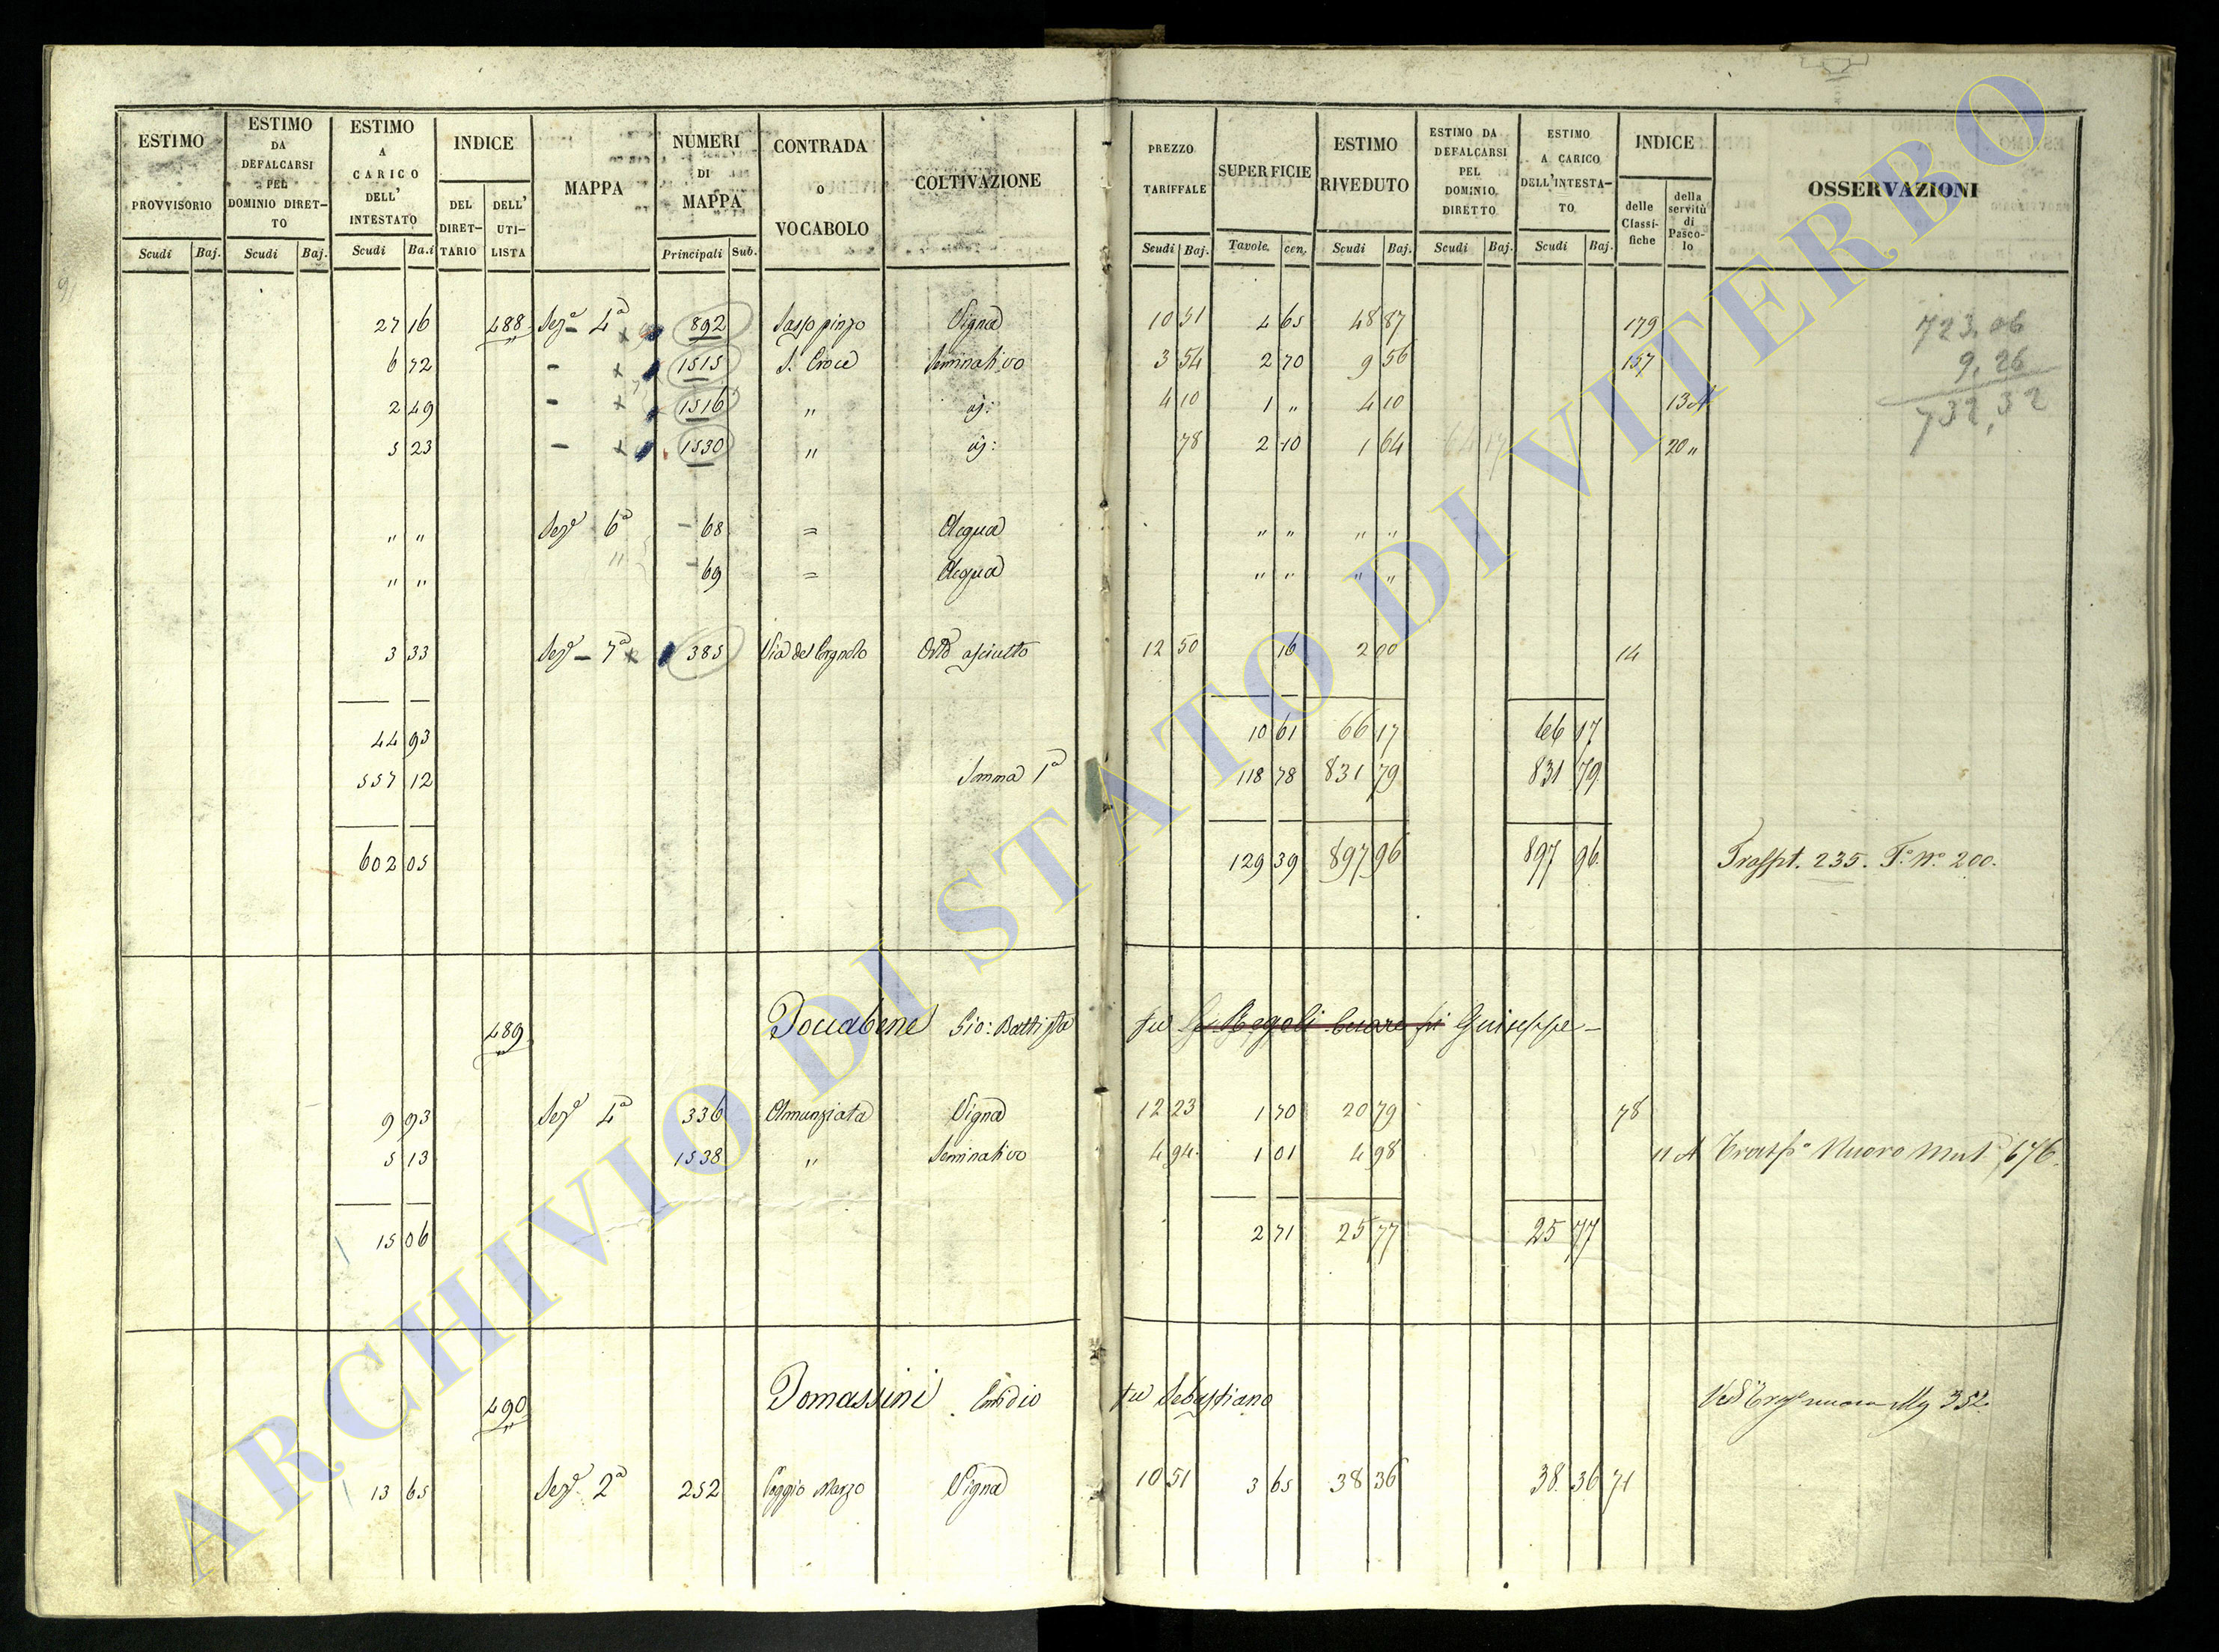 ESTIMO PROVVISORIO | ESTIMO DA DEFALCARSI PEL DOMINIO DIRET-TO | ESTIMO A CARICO DELL' INTESTATO | INDICE DEL DIRET-TARIO | DELL' UTI-LISTA | MAPPA | NUMERI DI MAPPA | CONTRADA O VOCABOLO | COLTIVAZIONE | PREZZO TARIFFALE | SUPERFICIE | ESTIMO RIVEDUTO | ESTIMO DA DEFALCARSI PEL DOMINIO DIRETTO | ESTIMO A CARICO DELL'INTESTA-TO | INDICE delle Classi-fiche | della servitù di Pasco-lo | OSSERVAZIONI
Scudi Baj. Scudi Baj. Scudi Ba.i Principali Sub. Scudi Baj. Tavole. cen. Scudi Baj. Scudi Baj. Scudi Baj.
27 16 488 Sezᵉ 4ª 892 Sasso pinzo Vigna 10 51 4 65 48 87 179 723.06
6 72 - 1515 S. Croce Seminativo 3 54 2 70 9 56 157 9.26
2 49 - 1516 " 4 10 1 " 4 10 13 A 732,32
5 23 - 1530 " 78 2 10 1 64 20 "
" " Sezᵉ 6ª 68 = Acqua " " " "
" " " 69 = Acqua " " " "
3 33 Sezᵉ 7ª 385 Orto asciutto 12 50 16 2 00 14
44 93 10 61 66 17 66 17
557 12 Somma 1ª 118 78 831 79 831 79
602 05 129 39 897 96 897 96 Traspt. 235. Tº Nº 200.
489 Gio: Battista fu Giuseppe
9 93 Sezᵉ 4ª 336 Annunziata Vigna 12 23 1 70 20 79 78
5 13 1538 " Seminativo 4 94 1 01 4 98 11 A Nuovo 676
15 06 2 71 25 77 25 77
490 Tomassini Emidio fu Sebastiano 352
13 65 Sezᵉ 2ª 252 Poggio Marzo Vigna 10 51 3 65 38 36 38 36 71
ARCHIVIO DI STATO DI VITERBO